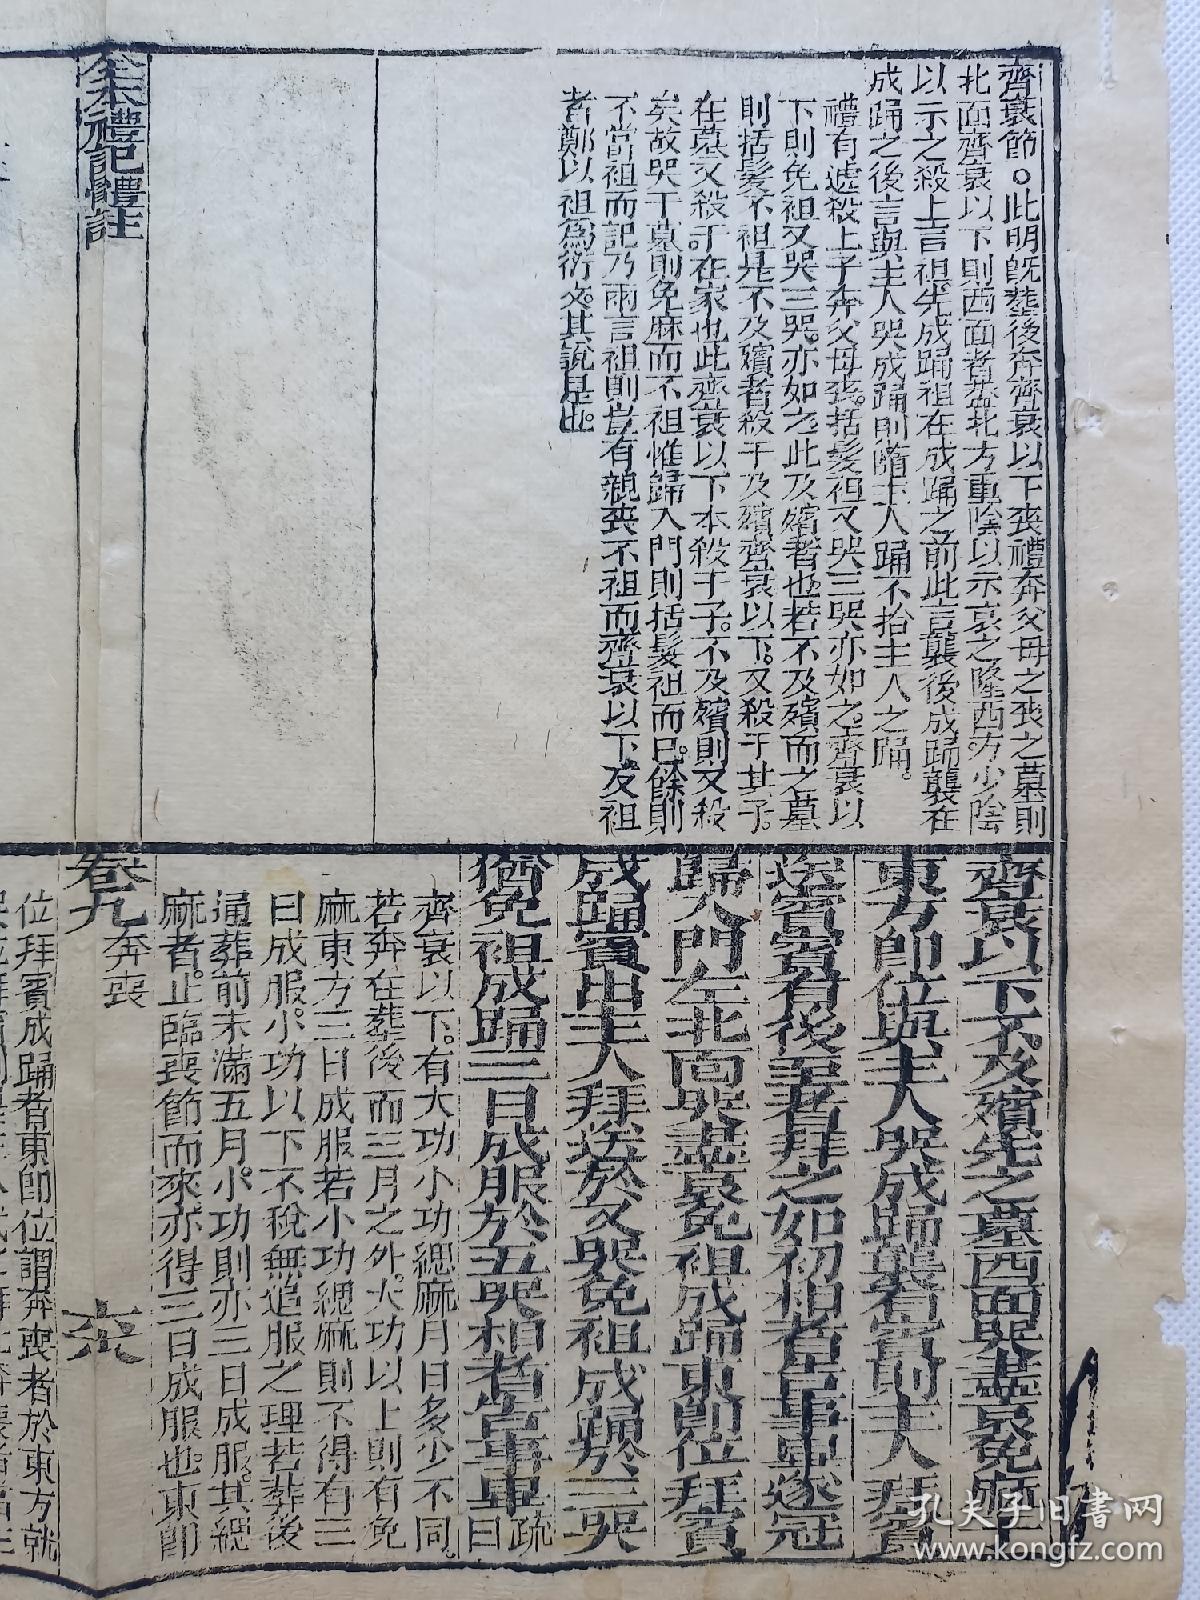 齊衰節。此明既塟後奔齊衰以下喪禮奔父母之喪之墓則
北面齊衰以下則西面者葢北方重陰以示哀之隆西方少陰
以示之殺上言袒先成踊袒在成踊之前此言襲後成踊襲在
成踊之後言與主人哭成踊則隨主人踊不拾主人之踊。
禮有遞殺上子奔父母喪。括髮袒又哭三哭亦如之。齊衰以
下則免袒又哭三哭。亦如之此及殯者也若不及殯而之墓
則括髮不袒是不及殯者殺于及殯齊衰以下。又殺于其子。
在墓又殺于在家也此齊衰以下本殺于子。不及殯則又殺
矣故哭于墓則免麻而不袒惟歸入門則括髮袒而已。餘則
不當袒而記乃兩言袒則豈有親喪不袒而齊衰以下。反袒
者鄭以袒為衍文。其說是也。
全本禮記體註
齊衰以下不及殯先之墓西面哭盡哀免麻于
東方即位與主人哭成踊襲有賓則主人拜賓
送賓賓有後至者拜之如初相者告事畢遂冠
歸入門左北面哭盡哀免袒成踊東即位拜賓
成踊賓出主人拜送於又哭免袒成踊於三哭
猶免袒成踊三日成服於五哭相者告事畢疏曰
齊衰以下。有大功小功緦麻月日多少不同。
若奔在塟後而三月之外。大功以上則有免
麻東方三日成服若小功緦麻則不得有三
日成服。小功以下不稅無追服之理若葬後
通葬前未滿五月。小功則亦三日成服。其緦
麻者。止臨喪節而來。亦得三日成服也。東即
卷九 奔喪 六
位拜賓成踊者東即位謂奔喪者於東方就
孔夫子旧书网
www.kongfz.com